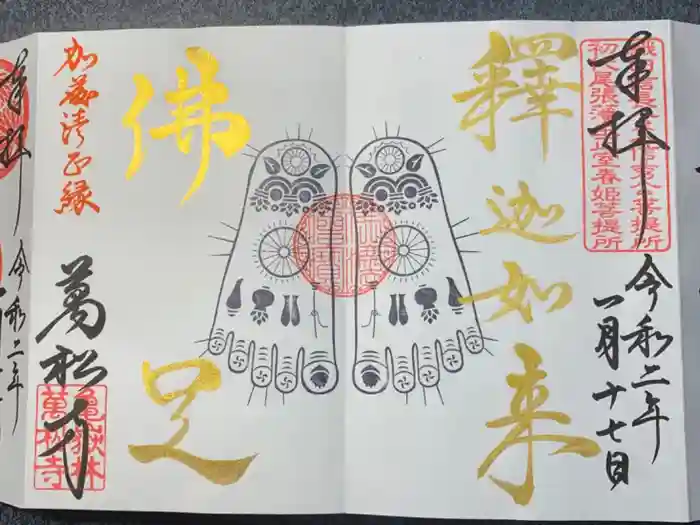 奉拝
令和二年
一月十七日
尾張藩
正室春姫菩提所
釋迦如来
佛足
加藤清正縁
萬松寺
亀嶽林
萬松寺
奉拝
令和二年